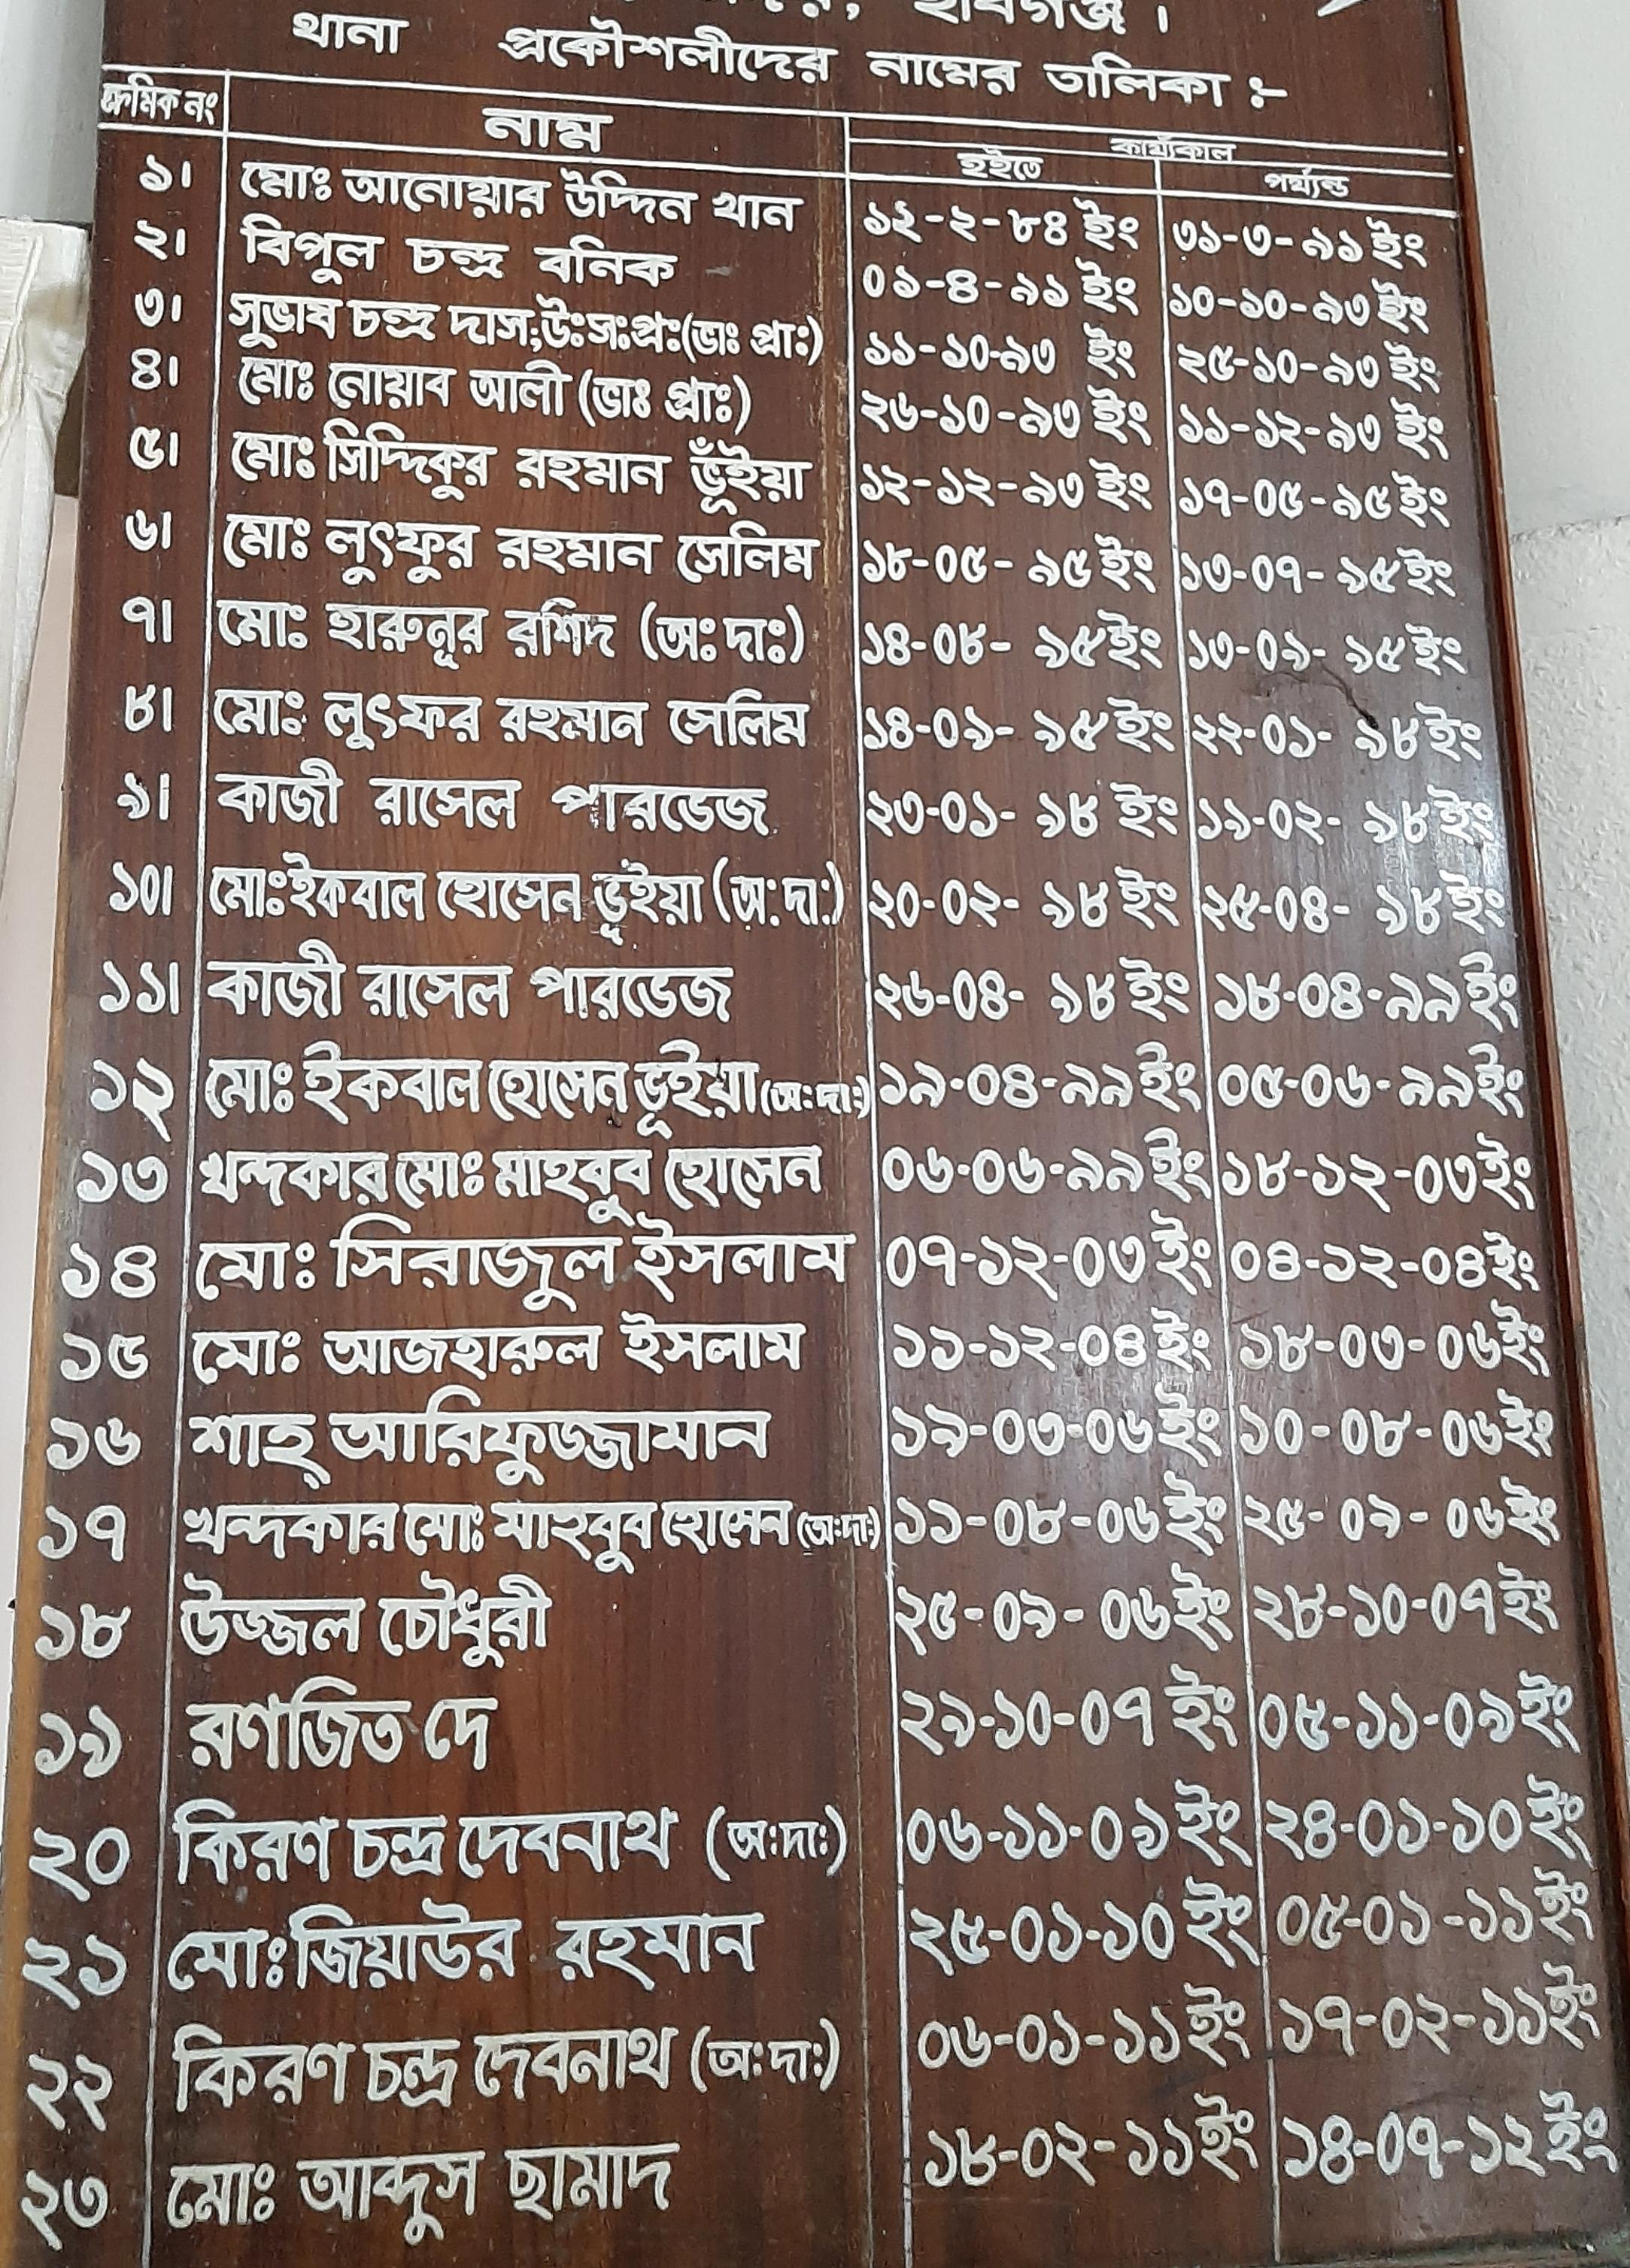 হবিগঞ্জ।
থানা প্রকৌশলীদের নামের তালিকা ঃ-
ক্রমিক নং নাম কার্য্যকাল
হইতে পর্য্যন্ত
১। মোঃ আনোয়ার উদ্দিন খান ১২-২-৮৪ ইং ৩১-৩-৯১ ইং
২। বিপুল চন্দ্র বনিক ০১-৪-৯১ ইং ১০-১০-৯৩ ইং
৩। সুভাষ চন্দ্র দাস;উঃসঃপ্রঃ(ভাঃ প্রাঃ) ১১-১০-৯৩ ইং ২৫-১০-৯৩ ইং
৪। মোঃ নোয়াব আলী (ভাঃ প্রাঃ) ২৬-১০-৯৩ ইং ১১-১২-৯৩ ইং
৫। মোঃ সিদ্দিকুর রহমান ভূঁইয়া ১২-১২-৯৩ ইং ১৭-০৫-৯৫ ইং
৬। মোঃ লুৎফুর রহমান সেলিম ১৮-০৫-৯৫ ইং ১৩-০৭-৯৫ ইং
৭। মোঃ হারুনূর রশিদ (অঃ দাঃ) ১৪-০৮-৯৫ ইং ১৩-০৯-৯৫ ইং
৮। মোঃ লুৎফর রহমান সেলিম ১৪-০৯-৯৫ ইং ২২-০১-৯৮ ইং
৯। কাজী রাসেল পারভেজ ২৩-০১-৯৮ ইং ১৯-০২-৯৮ ইং
১০। মোঃ ইকবাল হোসেন ভূইয়া (অঃ দাঃ) ২০-০২-৯৮ ইং ২৫-০৪-৯৮ ইং
১১। কাজী রাসেল পারভেজ ২৬-০৪-৯৮ ইং ১৮-০৪-৯৯ ইং
১২ মোঃ ইকবাল হোসেন ভূইয়া (অঃ দাঃ) ১৯-০৪-৯৯ ইং ০৫-০৬-৯৯ ইং
১৩ খন্দকার মোঃ মাহবুব হোসেন ০৬-০৬-৯৯ ইং ১৮-১২-০৩ ইং
১৪ মোঃ সিরাজুল ইসলাম ০৭-১২-০৩ ইং ০৪-১২-০৪ ইং
১৫ মোঃ আজহারুল ইসলাম ১১-১২-০৪ ইং ১৮-০৩-০৬ ইং
১৬ শাহ্ আরিফুজ্জামান ১৯-০৩-০৬ ইং ১০-০৮-০৬ ইং
১৭ খন্দকার মোঃ মাহবুব হোসেন (অঃ দাঃ) ১১-০৮-০৬ ইং ২৫-০৯-০৬ ইং
১৮ উজ্জল চৌধুরী ২৫-০৯-০৬ ইং ২৮-১০-০৭ ইং
১৯ রণজিত দে ২৯-১০-০৭ ইং ০৫-১১-০৯ ইং
২০ কিরণ চন্দ্র দেবনাথ (অঃ দাঃ) ০৬-১১-০৯ ইং ২৪-০১-১০ ইং
২১ মোঃ জিয়াউর রহমান ২৫-০১-১০ ইং ০৫-০১-১১ ইং
২২ কিরণ চন্দ্র দেবনাথ (অঃ দাঃ) ০৬-০১-১১ ইং ১৭-০২-১১ ইং
২৩ মোঃ আব্দুস ছামাদ ১৮-০২-১১ ইং ১৪-০৭-১২ ইং